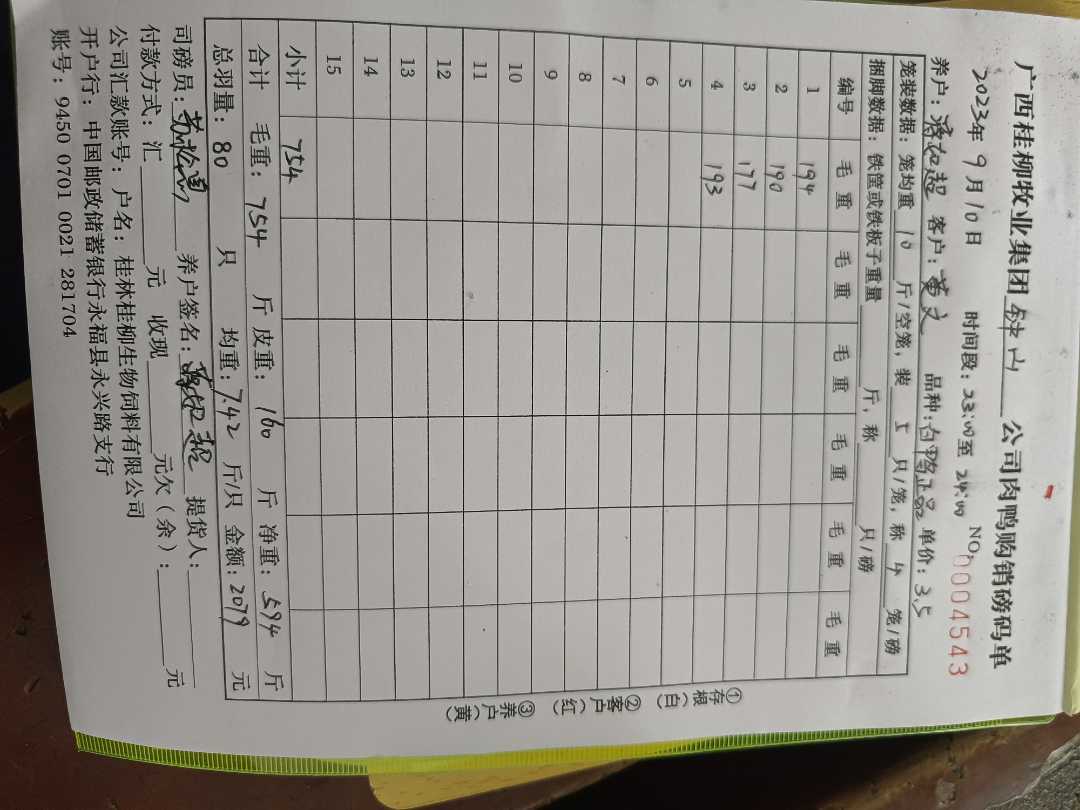 广西桂柳牧业集团 钟山 公司肉鸭购销磅码单
2023年 9月10日 时间段：23:00至 24:00 NO:0004543
养户： 客户：黄文 品种：白鸭正品 单价：3.5
笼装数据：笼均重 10 斤/空笼，装 5 只/笼，称 4 笼/磅
捆脚数据：铁筐或铁板子重量 斤，称 只/磅
编号 毛重 毛重 毛重 毛重 毛重 毛重
1 194
2 190
3 177
4 193
5
6
7
8
9
10
11
12
13
14
15
小计 754
合计 毛重：754 斤 皮重：160 斤 净重：594 斤
总羽量：80 只 均重：7.42 斤/只 金额：2079 元
司磅员： 养户签名： 提货人：
付款方式：汇 元 收现 元欠（余）： 元
公司汇款账号：户名：桂林桂柳生物饲料有限公司
开户行：中国邮政储蓄银行永福县永兴路支行
账号：9450 0701 0021 281704
①存根（白） ②客户（红） ③养户（黄）